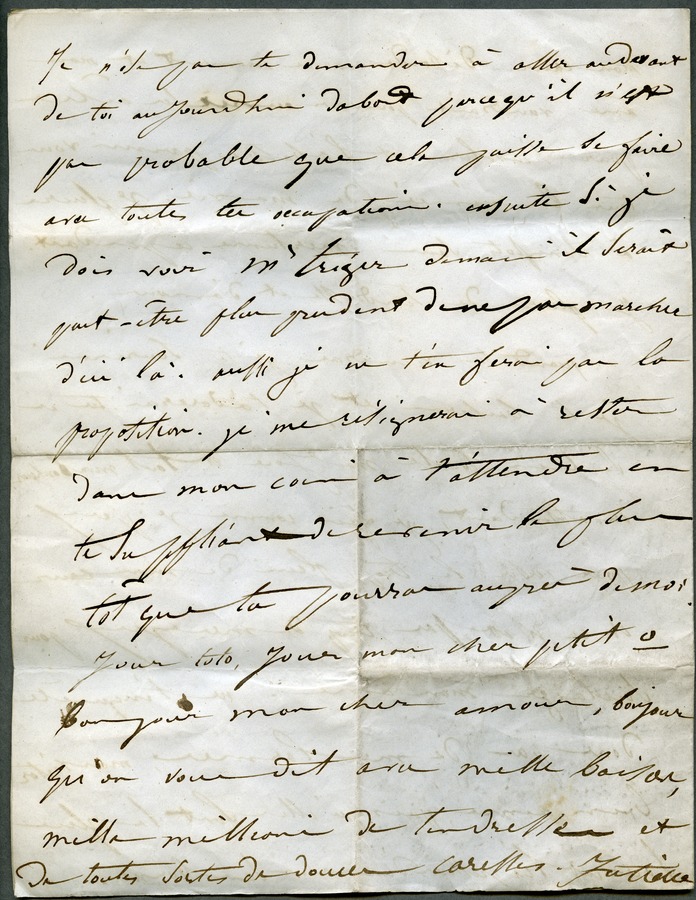 Je n'ose pas te demander à aller audevant
de toi aujourdhui dabord parcequ'il n'est
pas probable que cela puisse se faire
avec toutes tes occupations. ensuite Si je
dois voir Mr Triger demain il serait
peut-être plus prudent de ne pas marcher
d'ici là. aussi je ne t'en ferai pas la
proposition. je me résignerai à rester
dans mon coin à t'attendre en
te suppliant de revenir le plus
tôt que tu pourras auprès de moi.
Jour toto, Jour mon cher petit o
bonjour mon cher amour, bonjour
qu'on vous dit avec mille baisers,
mille millions de tendresses et
de toutes sortes de douces caresses. Juliette